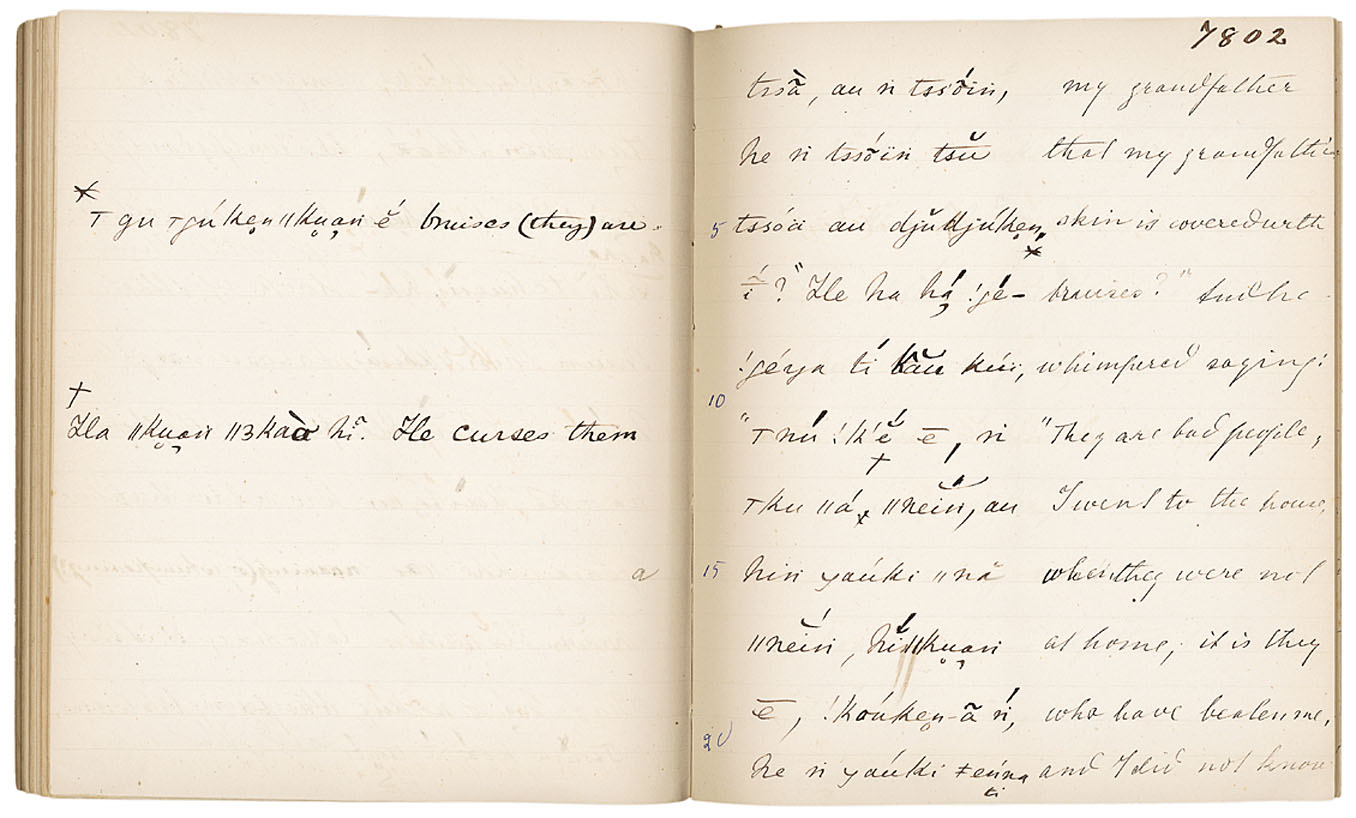 Ⲧ gu Ⲧgúken ǁkuan é̆ bruises (they) are.
Ha ǁkuan ǁ3kaò hĩ. He curses them
a
7802
tssã̀, au n tssó̃in, my grandfather
he n tssó̃ïn tsŭ that my grandfather's
5 tssóä au djŭdjúken, skin is covered with
ī́?" He ha há !gé- bruises?" And he
!géya tí kău kúi, whimpered saying:
10 "Ⲧnú !k'é̆ ē, n "They are bad people,
Ⲧku ǁá, ǁnéĭn, au I went to the house,
15 hin yaúki ǁnă when they were not
ǁnéĭn, hĭń ǁkuan at home; it is they
ē, !koúken-ã ń, who have beaten me,
20 he n yaúki ǂenna and I did not know
ti